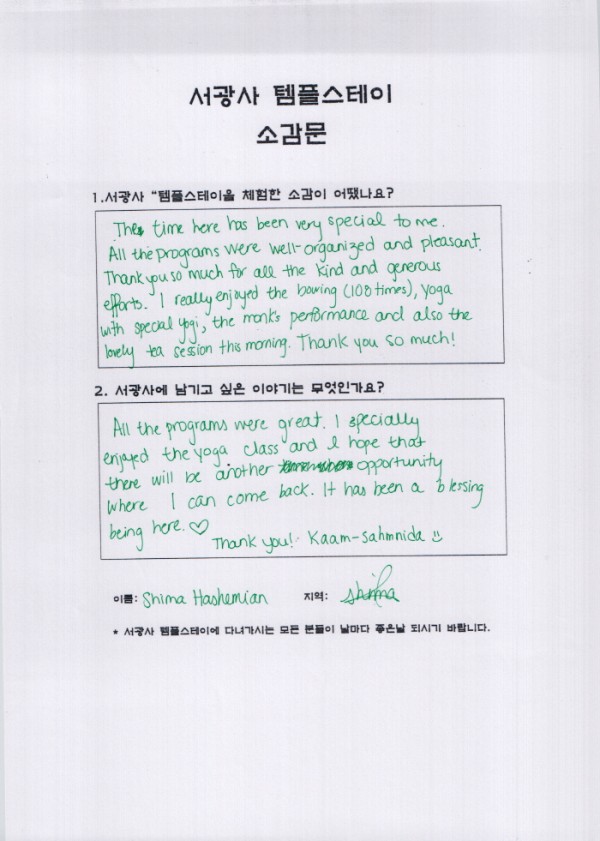 서광사 템플스테이
소감문
1.서광사 “템플스테이을 체험한 소감이 어땠나요?
The time here has been very special to me.
All the programs were well-organized and pleasant.
Thank you so much for all the kind and generous
efforts. I really enjoyed the bowing (108 times), yoga
with special yogi, the monk's performance and also the
lovely tea session this morning. Thank you so much!
2. 서광사에 남기고 싶은 이야기는 무엇인가요?
All the programs were great. I specially
enjoyed the yoga class and I hope that
there will be another opportunity
where I can come back. It has been a blessing
being here. ♡
Thank you! Kaam-sahmnida ☺
이름: Shima Hashemian 지역: shima
* 서광사 템플스테이에 다녀가시는 모든 분들이 날마다 좋은날 되시기 바랍니다.